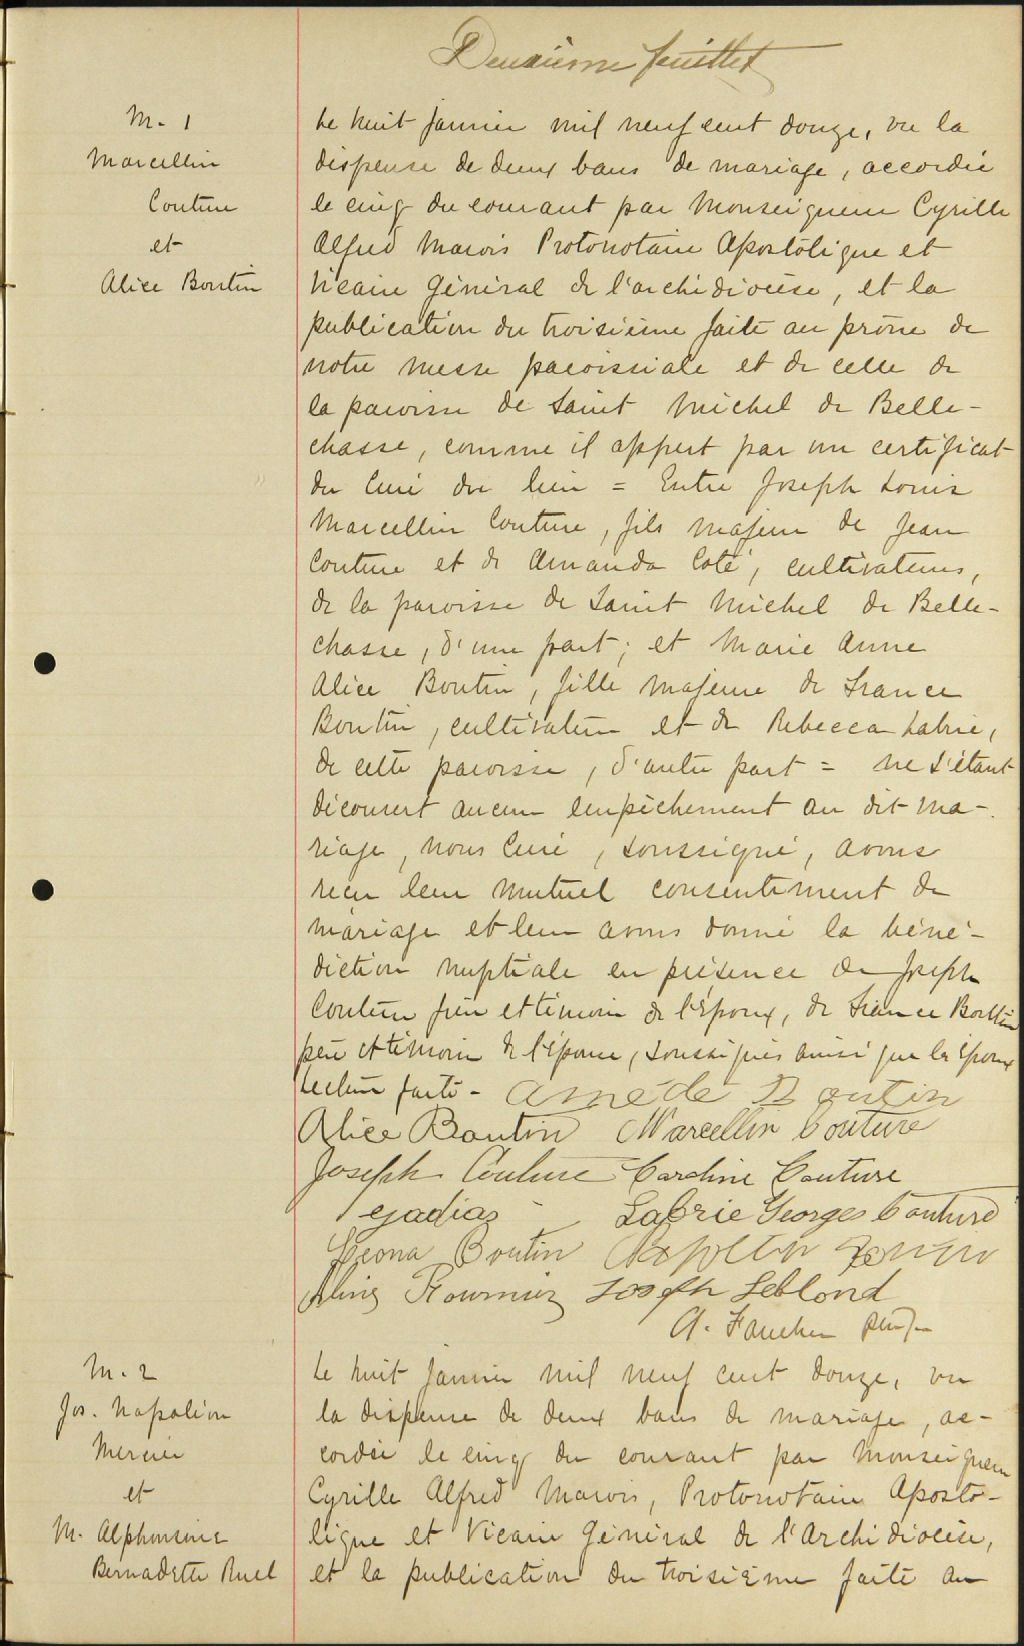 Deuxième feuillet
M. 1
Marcellin
Couture
et
Alice Boutin
Le huit janvier mil neuf cent douze, vu la
dispense de deux bans de mariage, accordée
le cinq du courant par Monseigneur Cyrille
Alfred Marois Protonotaire Apostolique et
Vicaire Général de l'archidiocèse, et la
publication du troisième faite au prône de
notre messe paroissiale et de celle de
la paroisse de Saint Michel de Belle-
chasse, comme il appert par un certificat
du Curé du lieu = Entre Joseph Louis
Marcellin Couture, fils majeur de Jean
Couture et de Amanda Coté, cultivateurs,
de la paroisse de Saint Michel de Belle-
chasse, d'une part; et Marie Anne
Alice Boutin, fille majeure de France
Boutin, cultivateur et de Rebecca Labrie,
de cette paroisse, d'autre part = ne s'étant
découvert aucun empêchement au dit ma-
riage, nous Curé, soussigné, avons
reçu leur mutuel consentement de
mariage et leur avons donné la béné-
diction nuptiale en présence de Joseph
Couture frère et témoin de l'époux, de France Boutin
père et témoin de l'épouse, soussignés ainsi que les époux
Lecture faite - Amédé Boutin
Alice Boutin Marcellin Couture
Joseph Couture Caroline Couture
Labrie Georges Couture
Léona Boutin
Fournier Joseph Leblond
A. Faucher ptre
M. 2
Jos. Napoléon
Mercier
et
M. Alphonsine
Bernadette Ruel
Le huit janvier mil neuf cent douze, vu
la dispense de deux bans de mariage, ac-
cordée le cinq du courant par Monseigneur
Cyrille Alfred Marois, Protonotaire Aposto-
lique et Vicaire Général de l'Archidiocèse,
et la publication du troisième faite au